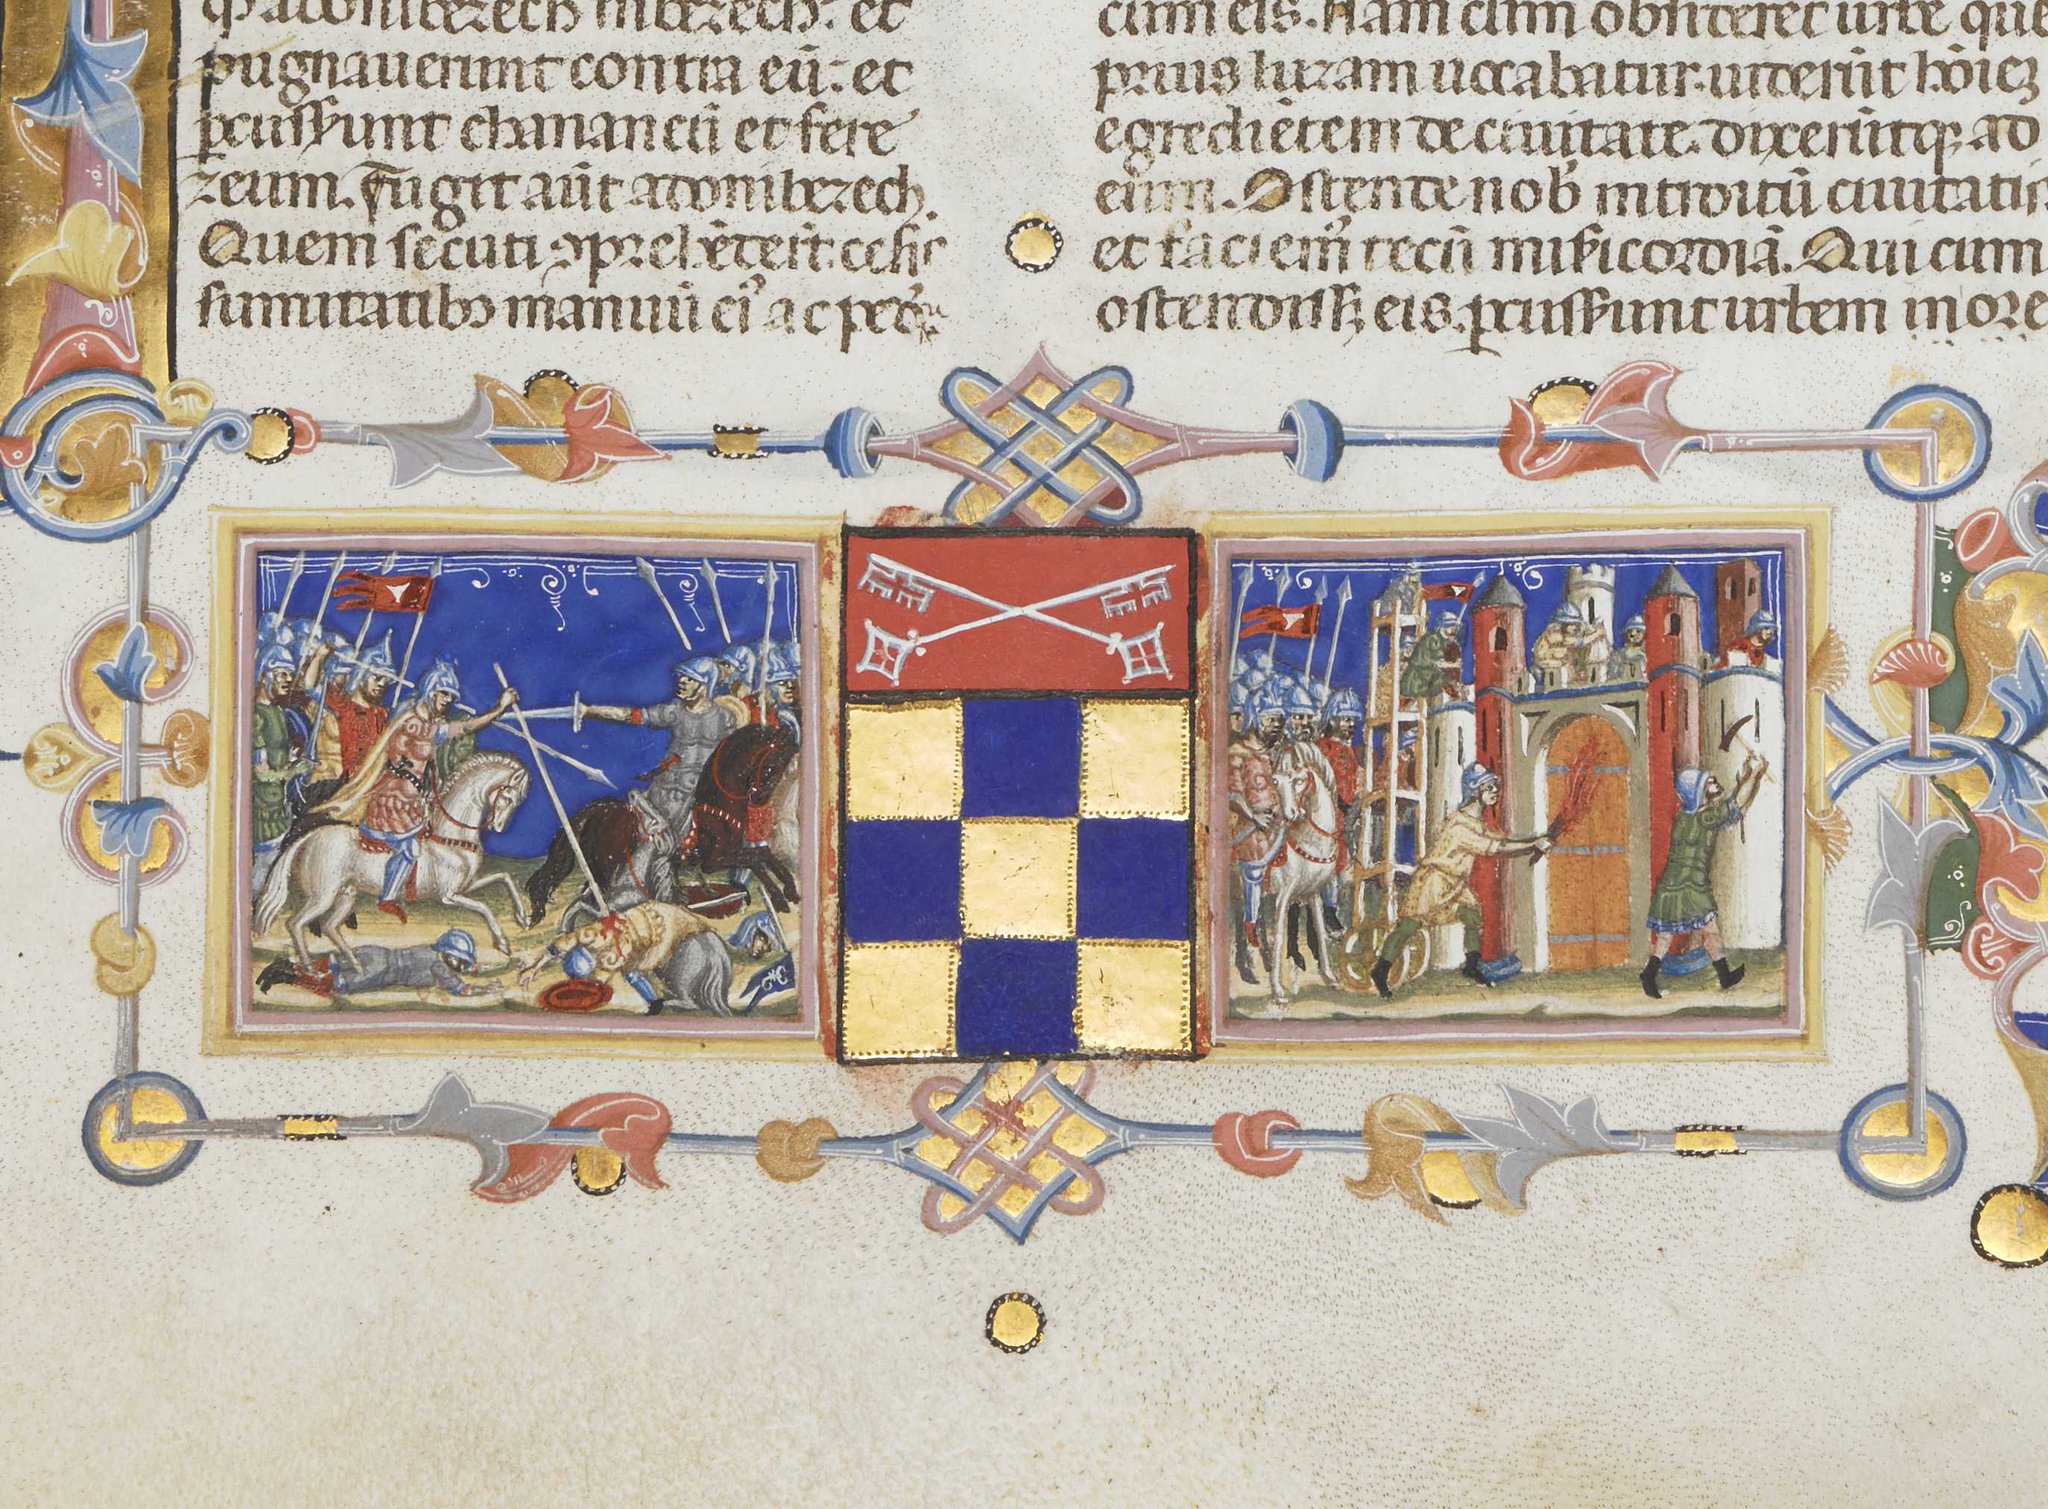 q̃ adonibezech in bezech: et
pugnauerunt contra eū: et
ꝑcusserunt chananeū et fere
zeum. Fugit aūt adonibezech.
Quem secuti ꝯprehēderūt: cesis
sumitatibꝫ manuū eiꝰ ac pedū
cum eis. Nam cum obsiderēt urbē que
prius luzam uocabatur. uiderūt hoīeꝫ
egrediētem de ciuitate. dixerūtqꝫ ad
eum. Ostende nob̄ introitū ciuitatis
et faciemꝰ tecū misicordiā. Qui cum
ostendissꝫ eis. ꝑcusserunt urbem in ore